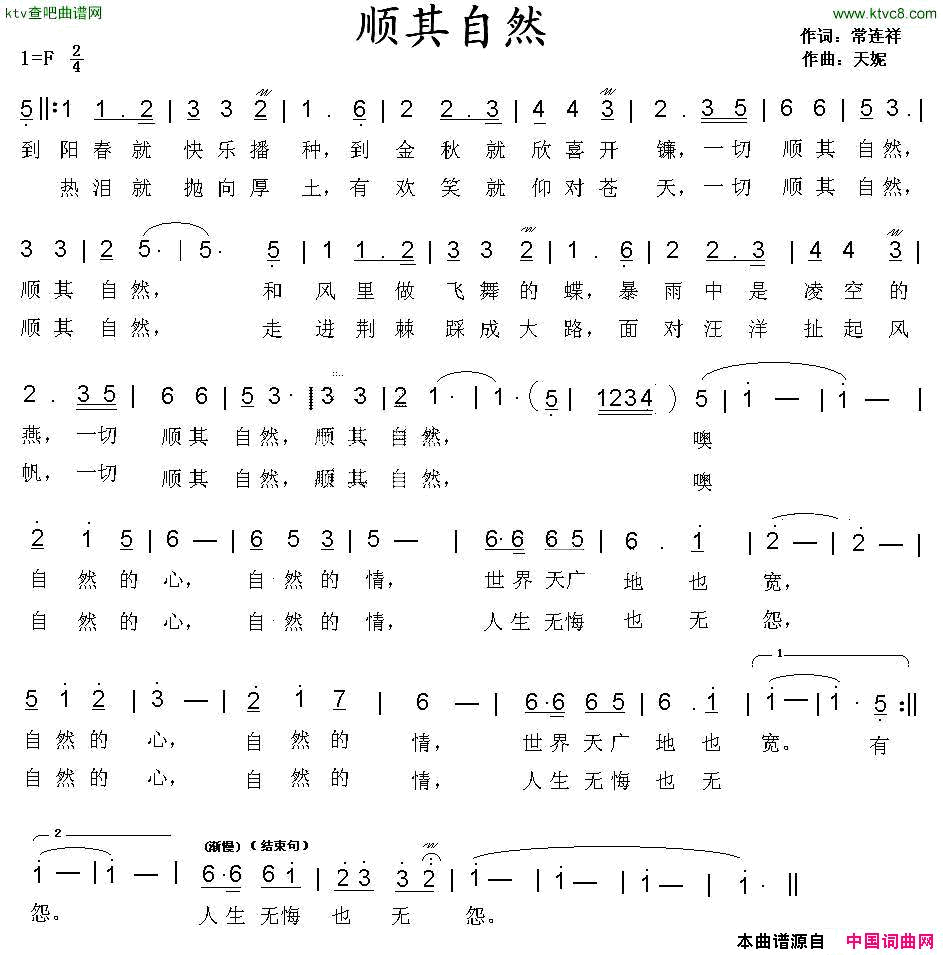 ktv查吧曲谱网
www.ktvc8.com
顺其自然
1=F 2/4
作词：常连祥
作曲：天妮
5 ||: 1 1 . 2 | 3 3 2 | 1 . 6 | 2 2 . 3 | 4 4 3 | 2 . 3 5 | 6 6 | 5 3 . |
到 阳 春 就 快 乐 播 种，到 金 秋 就 欣 喜 开 镰，一 切 顺 其 自 然，
热 泪 就 抛 向 厚 土，有 欢 笑 就 仰 对 苍 天，一 切 顺 其 自 然，
3 3 | 2 5 · | 5 · 5 | 1 1 . 2 | 3 3 2 | 1 . 6 | 2 2 . 3 | 4 4 3 |
顺 其 自 然， 和 风 里 做 飞 舞 的 蝶，暴 雨 中 是 凌 空 的
顺 其 自 然， 走 进 荆 棘 踩 成 大 路，面 对 汪 洋 扯 起 风
2 . 3 5 | 6 6 | 5 3 · 3 3 | 2 1 · | 1 · ( 5 | 1234 ) 5 | 1 — | 1 — |
燕，一切 顺其 自然，顺其 自然， 噢
帆，一切 顺其 自然，顺其 自然， 噢
2 1 5 | 6 — | 6 5 3 | 5 — | 6·6 6 5 | 6 . 1 | 2 — | 2 — |
自 然 的 心， 自 然 的 情， 世界 天广 地 也 宽，
自 然 的 心， 自 然 的 情， 人生 无悔 也 无 怨，
1
5 1 2 | 3 — | 2 1 7 | 6 — | 6·6 6 5 | 6 . 1 | 1 — | 1 · 5 :||
自 然 的 心， 自 然 的 情， 世界 天广 地 也 宽。 有
自 然 的 心， 自 然 的 情， 人生 无悔 也 无
2
（渐慢）（结束句）
1 — | 1 — | 6·6 6 1 | 2 3 3 2 | 1 — | 1 — | 1 — | 1 · ||
怨。 人生 无悔 也 无 怨。
本曲谱源自 中国词曲网